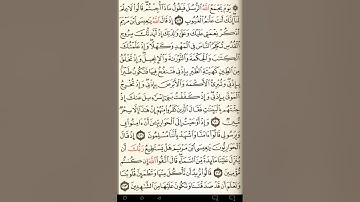 ۞ يَوْمَ يَجْمَعُ ٱللَّهُ ٱلرُّسُلَ فَيَقُولُ مَاذَآ أُجِبْتُمْ قَالُوا۟ لَا عِلْمَ
لَنَآ إِنَّكَ أَنتَ عَلَّـٰمُ ٱلْغُيُوبِ ١٠٩ إِذْ قَالَ ٱللَّهُ يَـٰعِيسَى ٱبْنَ مَرْيَمَ
ٱذْكُرْ نِعْمَتِى عَلَيْكَ وَعَلَىٰ وَٰلِدَتِكَ إِذْ أَيَّدتُّكَ بِرُوحِ
ٱلْقُدُسِ تُكَلِّمُ ٱلنَّاسَ فِى ٱلْمَهْدِ وَكَهْلًا وَإِذْ عَلَّمْتُكَ
ٱلْكِتَـٰبَ وَٱلْحِكْمَةَ وَٱلتَّوْرَىٰةَ وَٱلْإِنجِيلَ وَإِذْ تَخْلُقُ
مِنَ ٱلطِّينِ كَهَيْـَٔةِ ٱلطَّيْرِ بِإِذْنِى فَتَنفُخُ فِيهَا فَتَكُونُ طَيْرًۢا
بِإِذْنِى وَتُبْرِئُ ٱلْأَكْمَهَ وَٱلْأَبْرَصَ بِإِذْنِى وَإِذْ تُخْرِجُ
ٱلْمَوْتَىٰ بِإِذْنِى وَإِذْ كَفَفْتُ بَنِىٓ إِسْرَٰٓءِيلَ عَنكَ إِذْ
جِئْتَهُم بِٱلْبَيِّنَـٰتِ فَقَالَ ٱلَّذِينَ كَفَرُوا۟ مِنْهُمْ إِنْ هَـٰذَآ إِلَّا سِحْرٌ
مُّبِينٌ ١١٠ وَإِذْ أَوْحَيْتُ إِلَى ٱلْحَوَارِيِّـۧنَ أَنْ ءَامِنُوا۟ بِى
وَبِرَسُولِى قَالُوٓا۟ ءَامَنَّا وَٱشْهَدْ بِأَنَّنَا مُسْلِمُونَ ١١١ إِذْ قَالَ
ٱلْحَوَارِيُّونَ يَـٰعِيسَى ٱبْنَ مَرْيَمَ هَلْ يَسْتَطِيعُ رَبُّكَ أَن
يُنَزِّلَ عَلَيْنَا مَآئِدَةً مِّنَ ٱلسَّمَآءِ قَالَ ٱتَّقُوا۟ ٱللَّهَ إِن كُنتُم
مُّؤْمِنِينَ ١١٢ قَالُوا۟ نُرِيدُ أَن نَّأْكُلَ مِنْهَا وَتَطْمَئِنَّ قُلُوبُنَا
وَنَعْلَمَ أَن قَدْ صَدَقْتَنَا وَنَكُونَ عَلَيْهَا مِنَ ٱلشَّـٰهِدِينَ ١١٣